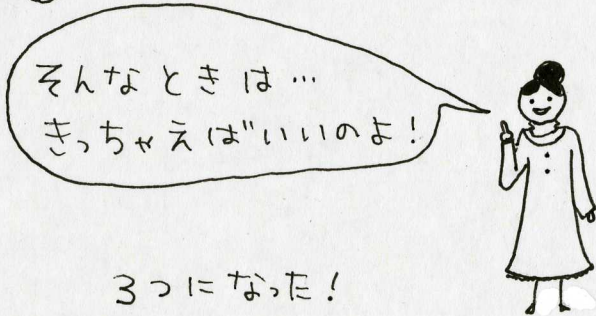 そんなときは…
きっちゃえばいいのよ！
3つになった！